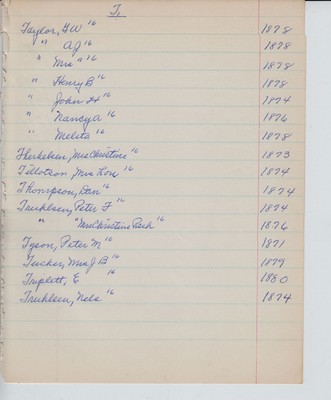 T,
Taylor, G W 16 1878
" A J 16 1878
" Mrs " 16 1878
" Henry B 16 1878
" John H 16 1874
" Nancy A 16 1876
" Melita 16 1878
Therkelsen, Mrs Christine 16 1873
Tillotson, Mrs Lou 16 1874
Thompson, Dan 16 1874
Truhlsen, Peter F 16 1874
" " Mrs Christine Park 16 1876
Tyson, Peter M 16 1871
Tucker, Mrs J B 16 1879
Triplett, E 16 1880
Truhlsen, Nels 16 1874